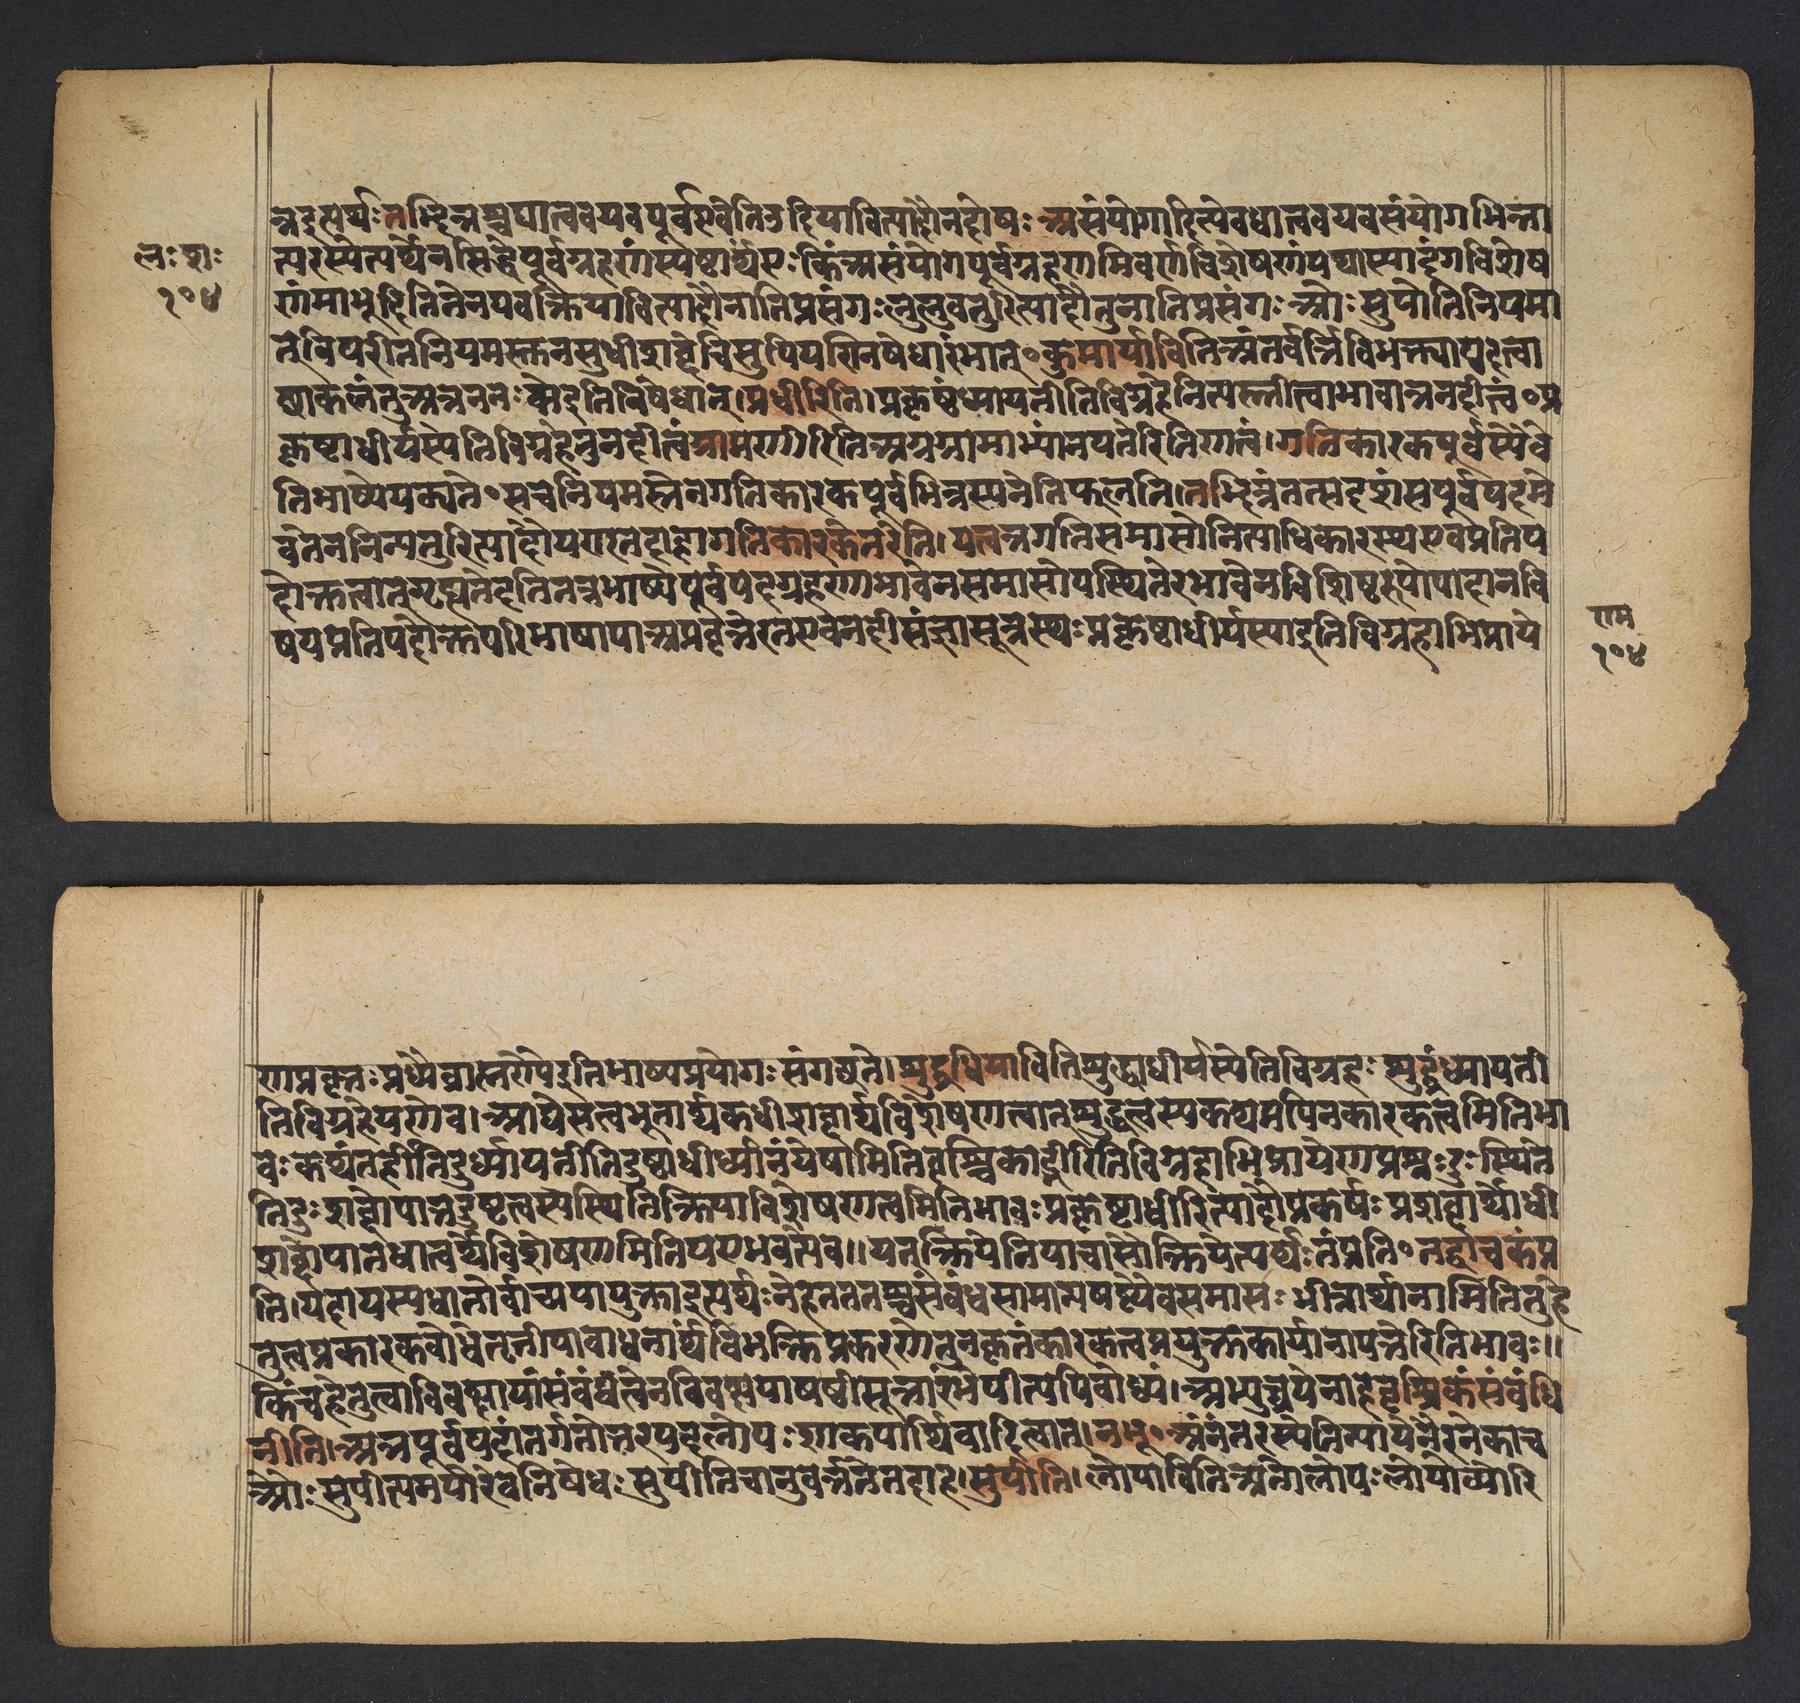 न्नइत्यर्थः तद्भिन्नश्च धात्ववयवपूर्व एवेति उद्दियावित्यादौ न दोषः असंयोगादित्येव धात्ववयवसंयोगभिन्ना
लः शः
१०४
त्परस्येत्यर्थेन सिद्धे पूर्वग्रहणं स्पष्टार्थं एः किं असंयोगपूर्वग्रहणमिवर्णविशेषणं यथा स्यादंगविशेष
णं माभूदिति तेन यवक्रियावित्यादौ नातिप्रसंगः लुलुवतुरित्यादौ तु नातिप्रसंगः ओः सुपीति नियमा
त् विपरीतनियमस्तु न सुधीशब्दे चि सुपि यणि निषेधारंभात् ॰ कुमार्याविति अंतर्वर्त्तिविभक्त्या पदत्वा
च्छाकलं तु अत्र न नः क्वादुतिनिषेधात् । प्रधीरिति । प्रकृष्टं ध्यायतीति विग्रहे नित्यस्त्रीत्वाभावान्न नदीत्वं ॰ प्र
कृष्टा धीर्यस्येति विग्रहे तु नदीत्वं ग्रामणीरिति अग्रग्रामाभ्यां नयतेरिति णत्वं । गतिकारकपूर्वस्यैवे
ति भाष्ये पठ्यते ॰ स च नियमस्तेन गतिकारकपूर्वभिन्नस्य नेति फलति । तद्भिन्नं तत्सदृशं सपूर्वपदमे
वे तेन निन्यतुरित्यादौ यण् तदाह गतिकारकेतरेति । यत्वत्र गतिसमासो नित्याधिकारस्थ एव प्रतिप
दोक्तत्वात् गृह्यत इति तन्न भाष्ये पूर्वपदग्रहणाभावेन समासोपस्थितेरभावेन विशिष्टरूपोपादानवि
षयप्रतिपदोक्तपरिभाषाया अप्रवृत्तेरत एव नदीसंज्ञासूत्रस्थः प्रकृष्टा धीर्यस्या इति विग्रहाभिप्राये
राम
१०४
ण प्रवृत्तः प्रध्यै ब्राह्मण्यै इति भाष्यप्रयोगः संगच्छते । शुद्धधियाविति शुद्धा धीर्यस्येति विग्रहः शुद्धं ध्यायती
ति विग्रहे यणेव । आद्ये सत्वभूतार्थकधीशब्दार्थविशेषणत्वात् शुद्धत्वस्य कथमपि न कारकत्वमिति भा
वः कथं तर्हीति दुर्ध्यायतीति दुष्टा धीर्ध्यानं येषामिति वृश्चिकाद्भीरिति विग्रहाभिप्रायेण प्रश्नः दुः स्थिते
ति दुः शब्दोपात्तदुष्टत्वस्य स्थितिक्रियाविशेषणत्वमिति भावः प्रकृष्टा धीरित्यादौ प्रकर्षः प्रशब्दार्थो धी
शब्दोपात्तधात्वर्थविशेषणमिति यण् भवत्येव ॥ यत् क्रियेति या चासौ क्रियेत्यर्थः तं प्रति ॰ तद्वाचकं प्र
ति । यद्वा यस्य धातोर्वाच्यया युक्ता इत्यर्थः नेहेत तत्तश्च संबंधसामान्यषष्ठ्यैव समासः भीत्रार्थानामिति तु हे
तुत्वप्रकारकबोधे तृतीयाबाधनार्थं विभक्तिप्रकरणे तु न कृतं कारकत्वप्रयुक्तकार्यानापत्तेरिति भावः ॥
किंच हेतुत्वाविवक्षायां संबंधत्वेन विवक्षया षष्ठीसूत्रारंभेपीत्यपि बोध्यं । अभ्युच्चयेनाह वृश्चिकसंबंधि
नीति । अत्र पूर्वपदांतर्गतोत्तरपदलोपः शाकपार्थिवादित्वात् । नभू ॰ अनंतरस्येति न्यायेनैरनेकाच
ओः सुपीत्यनयोरेव निषेधः सुपीति चानुवर्त्तते तदाह । सुपीति । लोपाविति अतो लोपः लोपो व्योरि